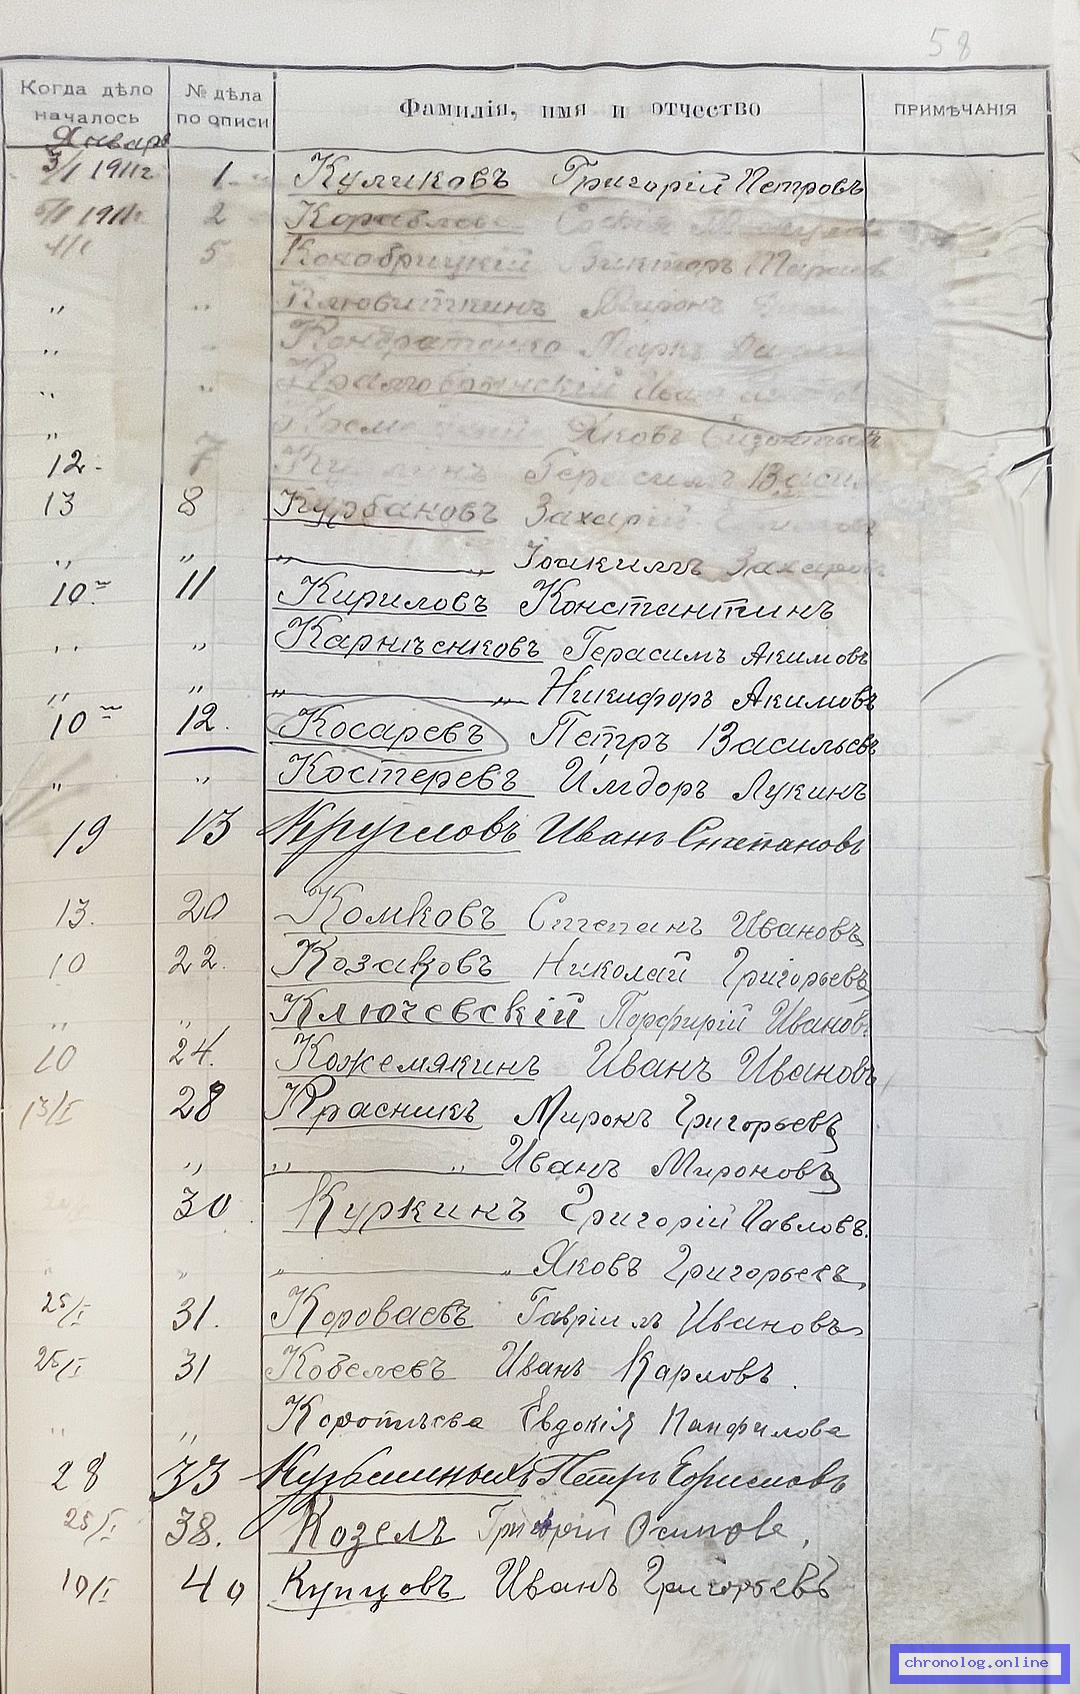 58
Когда дѣло началось № дѣла по описи Фамилія, имя и отчество ПРИМѢЧАНІЯ
Январь
3/I 1911г 1. Куликовъ Григорій Петровъ
5/I 1911г 2
5 Кокобрицкій Викторъ
„ „ Клювиткинъ Миронъ
„ Кондратенко Маркъ
„ „ Иванъ
„ Яковъ
12. 7 Герасимъ Васил
13 8 Курбановъ Захарій
„ „ „ „ Іоакимъ Захаровъ
10 11 Кириловъ Константинъ
„ „ Карпѣенковъ Герасимъ Акимовъ
„ „ „ „ Никифоръ Акимовъ
10 12. Косаревъ Петръ Васильевъ
„ „ Костеревъ Лукинъ
19 13 Кругловъ Иванъ Степановъ
13. 20 Комковъ Степанъ Ивановъ
10 22. Козаковъ Николай Григорьевъ
„ „ Ключевскій Порфирій Ивановъ
10 24. Кожемякинъ Иванъ Ивановъ
13/I 28 Красникъ Миронъ Григорьевъ
„ „ „ Иванъ Мироновъ
30 Куркинъ Григорій Павловъ.
„ „ „ „ Яковъ Григорьевъ
25/I 31. Короваевъ Гавріилъ Ивановъ
25/I 31 Кобелевъ Иванъ Карловъ.
„ „ Коротѣева Евдокія Панфилова
28 33 Кузьминыхъ Петръ Борисовъ
25/I 38. Козелъ Григорій Осипова
10/I 40 Купцовъ Иванъ Григорьевъ
chronolog.online